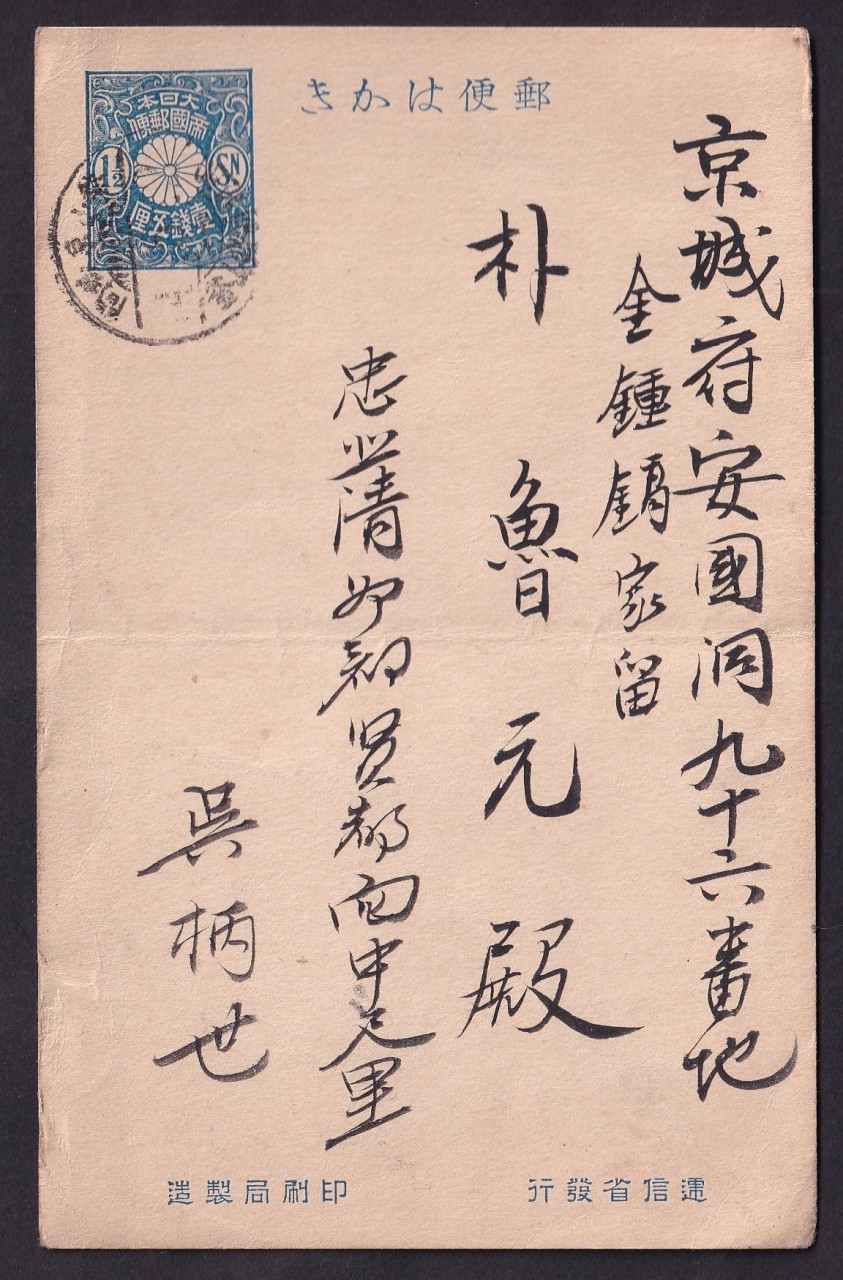 郵便はかき
大日本
帝國郵便
1½ SN
壹錢五厘
京城府安國洞九十六番地
金鍾鎬家留
朴魯元殿
忠北清州郡賢都面中尺里
吳柄世
遞信省發行
印刷局製造